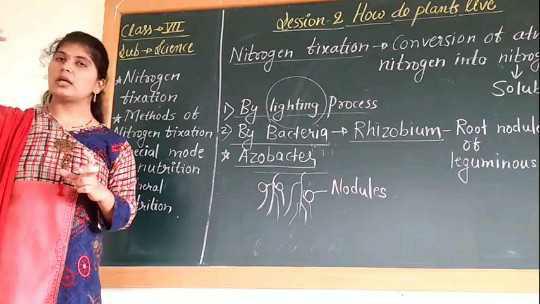 Class → VII
Sub → Science
* Nitrogen
fixation
* Methods of
Nitrogen fixation
mode
Session-2 How do plants live
Nitrogen fixation → Conversion of
nitrogen into
↓
1) By lighting Process
2) By Bacteria → Rhizobium - Root
of
leguminous
* Azobacter
Nodules